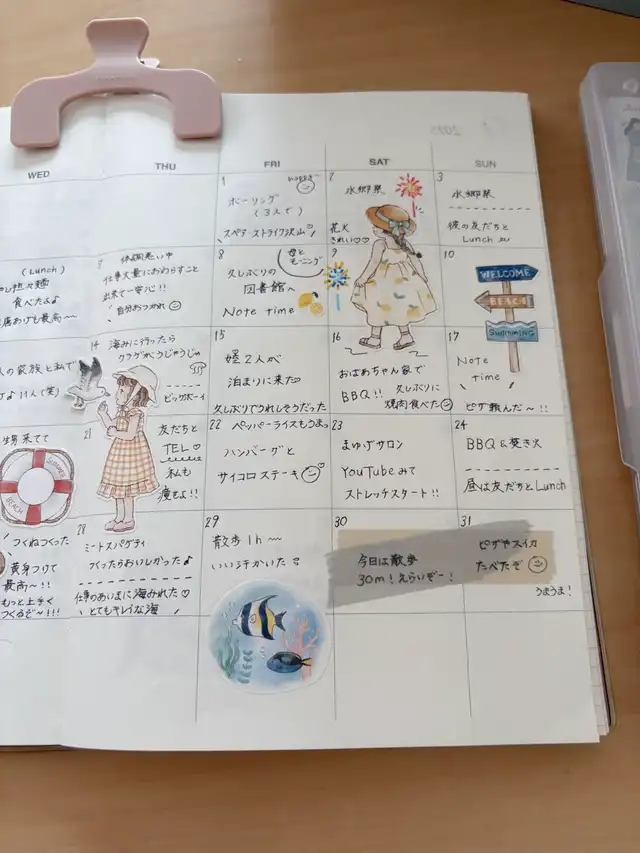 WED
THU
FRI
SAT
SUN
1
ボーリング
(3人で)
スペアーストライク沢山
2
水郷祭
花火
きれい♡♡
3
水郷祭
彼の友だちと
Lunch
(Lunch)
食べたよ
体調悪い中
仕事大量におわらすこと
出来て一安心!!
自分おつかれ
8
母と
モーニング
久しぶりの
図書館へ
Note time
9
10
WELCOME
BEACH
SWIMMING
人の家族と私で
11人(笑)
14
海みに行ったら
クラゲがうじゃうじゃ
ビッグボーイ
15
姪2人が
泊まりに来た
久しぶりでうれしそうだった
16
おばあちゃん家で
BBQ!! 久しぶりに
焼肉食べた
17
Note
time
ピザ頼んだ〜!!
来てて
21
友だちと
TEL♡
私も
痩せよ!!
22
ペッパーライスもうまっ
ハンバーグと
サイコロステーキ
23
まゆげサロン
YouTubeみて
ストレッチスタート!!
24
BBQ&焚き火
昼は友だちとLunch
つくねつくった
黄身つけて
最高〜!!
もっと上手く
つくるぞ〜!!!
28
ミートスパゲティ
つくったらおいしかった♪
仕事のあいまに海みれた♡
とてもキレイな海♪
29
散歩1h〜
いい汗かいた
30
今日は散歩
30m!えらいぞー!
31
ピザやスイカ
たべたぞ
うまうま!